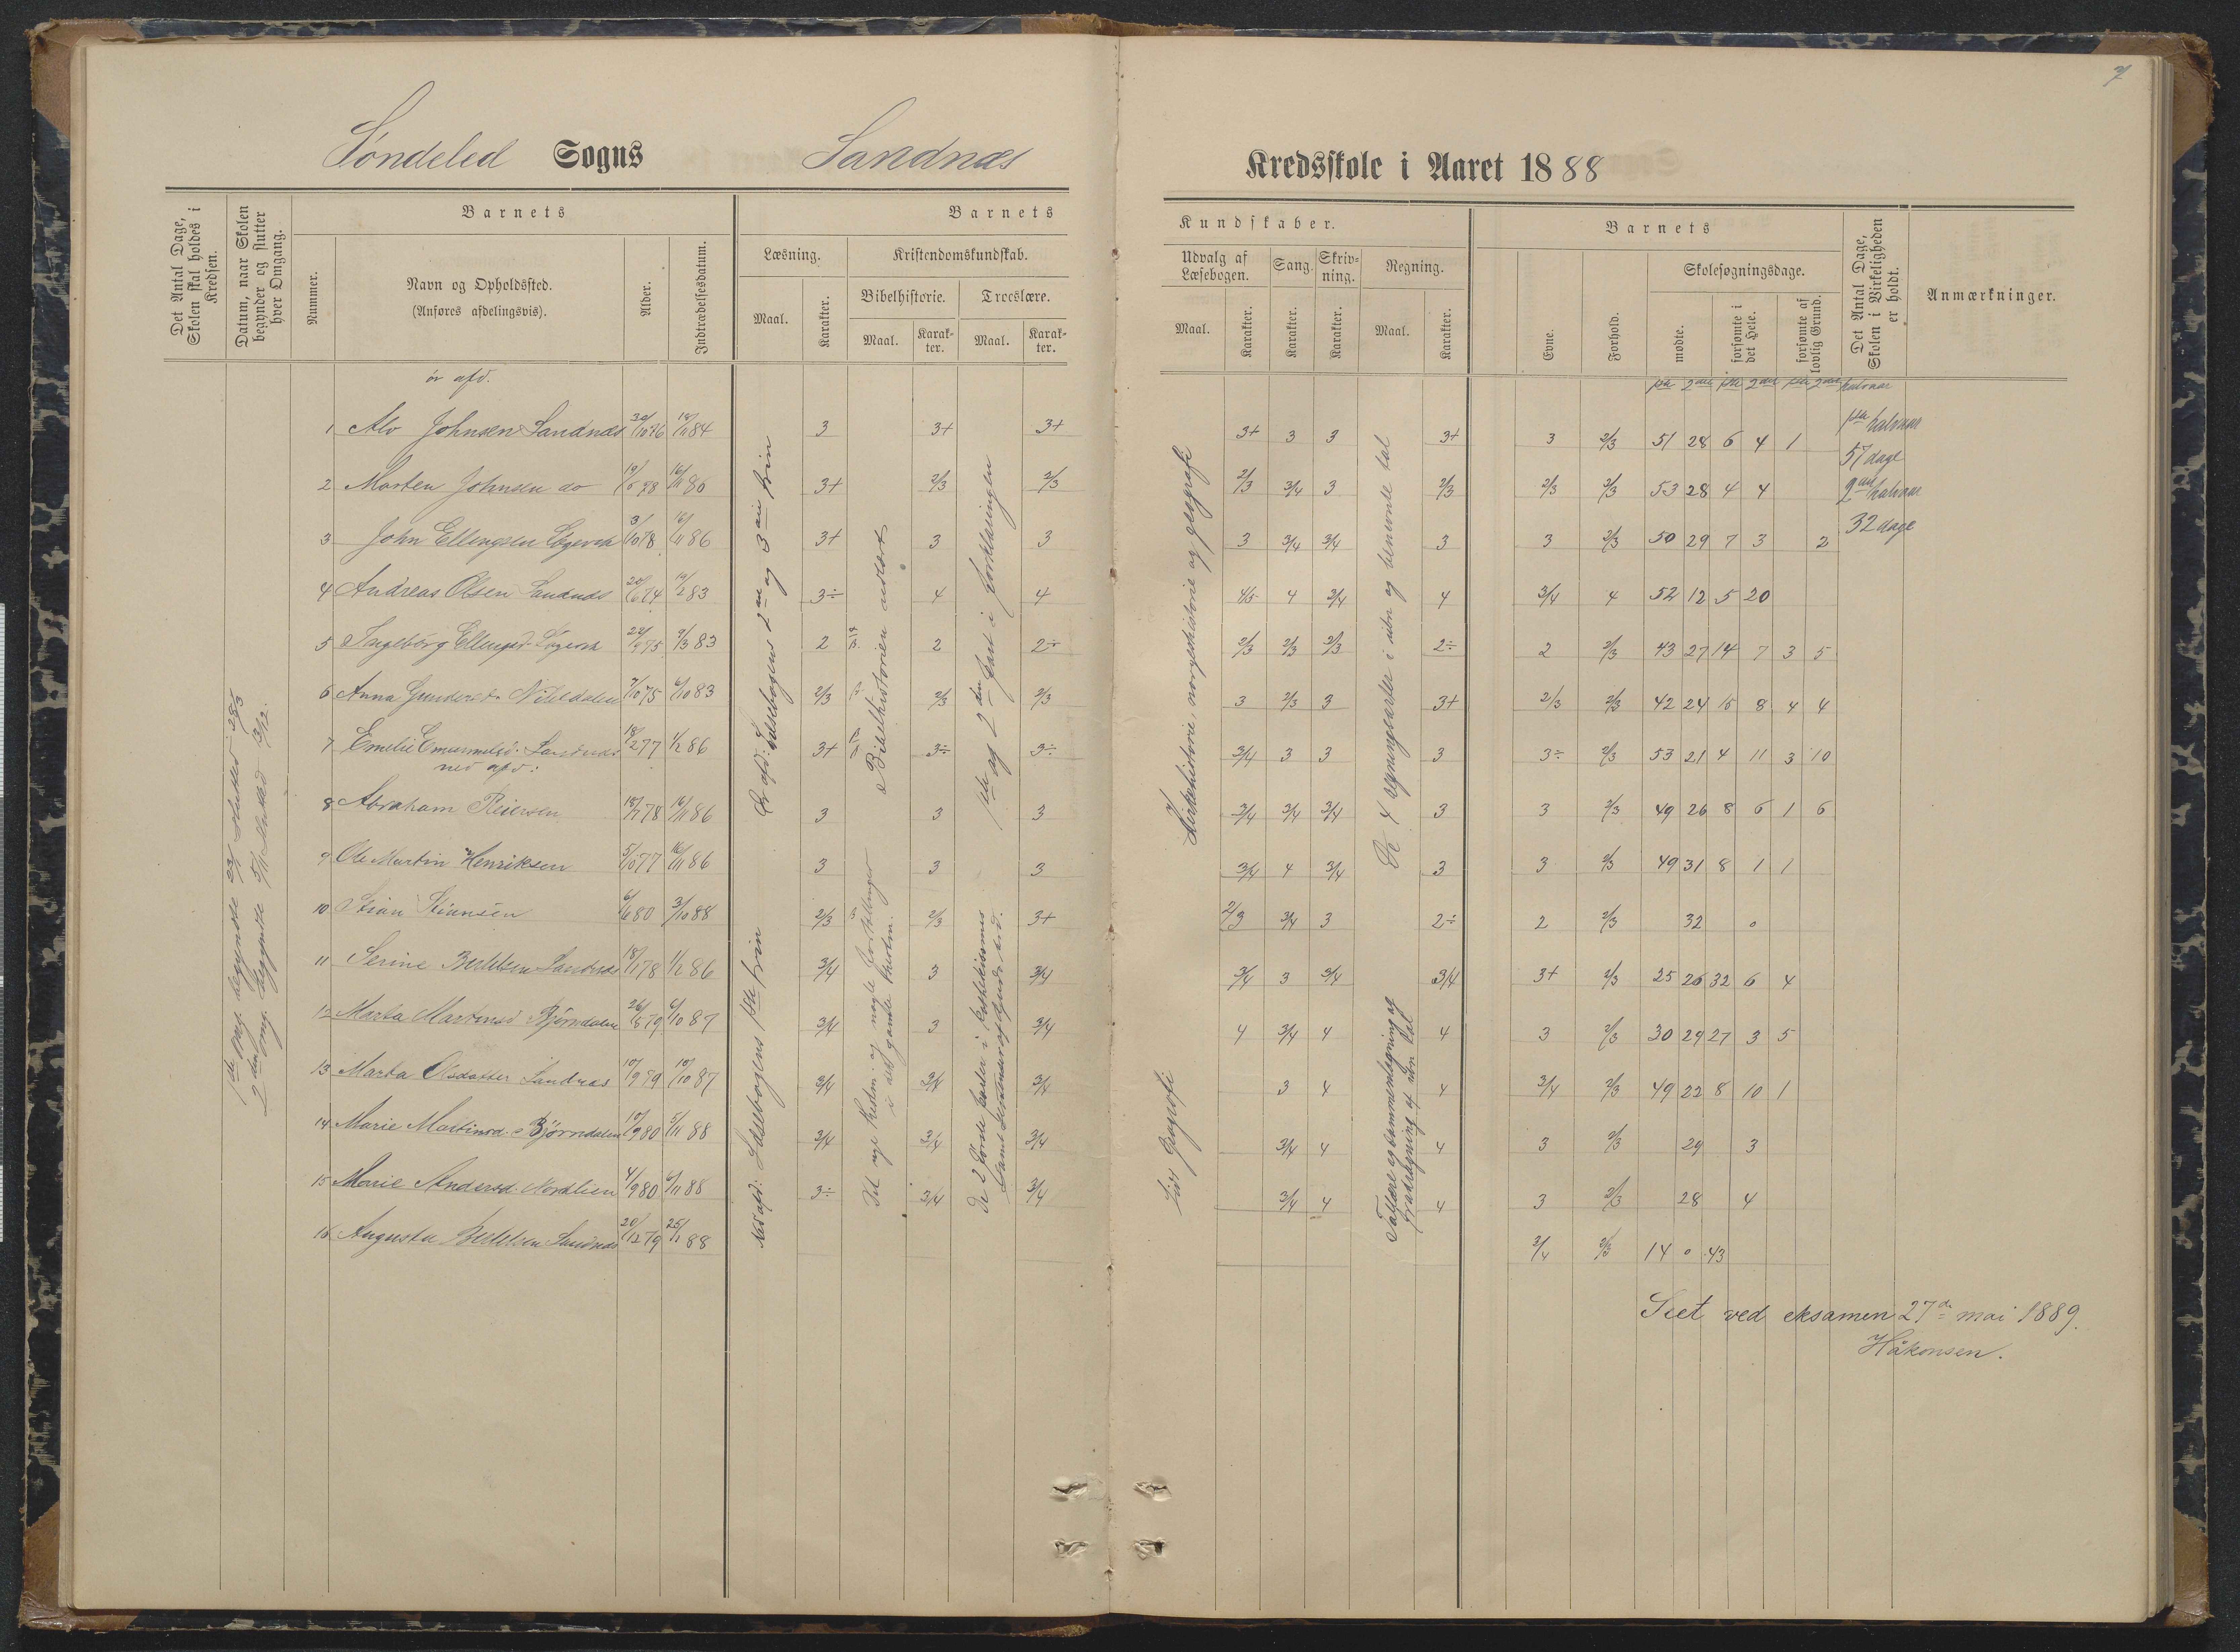 7
Søndeled Sogns Sandnæs Kredsskole i Aaret 1888
Det Antal Dage, Skolen skal holdes i Kredsen.
Datum, naar Skolen begynder og slutter hver Omgang.
Barnets
Nummer.
Navn og Opholdssted.
(Anføres afdelingsvis).
Alder.
Indtrædelsesdatum.
Barnets
Læsning.
Maal.
Karakter.
Kristendomskundskab.
Bibelhistorie.
Maal.
Karakter.
Troeslære.
Maal.
Karakter.
Kundskaber.
Udvalg af Læsebogen.
Maal.
Karakter.
Sang.
Karakter.
Skrivning.
Karakter.
Regning.
Maal.
Karakter.
Barnets
Evne.
Forhold.
Skolesøgningsdage.
mødte.
forsømte i det Hele.
forsømte af lovlig Grund.
Det Antal Dage, Skolen i Virkeligheden er holdt.
Anmærkninger.
1ste 2den 1ste 2den 1ste 2den halvaar
1ste halvaar
57 dage
2det halvaar
32 dage
øv afd.
1 Alv Johnsen Sandnæs 30/10 76 18/11 84 3 3+ 3+ 3+ 3 3 3+ 3 2/3 51 28 6 4 1
2 Morten Johnsen do 3+ 2/3 2/3 2/3 3/4 3 2/3 2/3 2/3 53 28 4 4
3 John Ellengsen 3/10 78 16/11 86 3+ 3 3 3 3/4 3/4 3 3 2/3 50 29 7 3 2
4 Andreas Olsen Sandnæs 3÷ 4 4 4/5 4 3/4 4 3/4 4 52 12 5 20
5 Ingeborg Ellengsd. 2 2 2÷ 2/3 2/3 2/3 2÷ 2 2/3 43 27 14 7 3 5
6 Anna 7/10 75 6/10 83 2/3 2/3 2/3 3 2/3 3 3+ 2/3 2/3 42 24 15 8 4 4
7 Emelie Emanuelsd. Sandnæs 18/2 77 1/2 86 3+ 3÷ 3÷ 3/4 3 3 3 3÷ 2/3 53 21 4 11 3 10
ned afd:
8 Abraham Reiersen 18/7 78 16/11 86 3 3 3 3/4 3/4 3/4 3 3 2/3 49 26 8 6 1 6
9 Ole Martin Henriksen 5/10 77 16/11 86 3 3 3 3/4 4 3/4 3 3 2/3 49 31 8 1 1
10 Stian Stiansen 6/6 80 3/10 88 2/3 2/3 3+ 2/3 3/4 3 2÷ 2 2/3 32 0
11 Serine Bertelsen Sandnæs 18/1 78 1/2 86 3/4 3 3/4 3/4 3 3/4 3/4 3+ 2/3 25 26 32 6 4
12 Marta Martinsd Bjørndalen 79 6/10 87 3/4 3 3/4 4 3/4 4 4 3 2/3 30 29 27 3 5
13 Marta Olsdatter Sandnæs 10/9 79 10/10 87 3/4 3/4 3/4 3 4 4 3/4 2/3 49 22 8 10 1
14 Marie Martinsd. Bjørndalen 10/9 80 5/11 88 3/4 3/4 3/4 3/4 4 4 3 2/3 29 3
15 Marie Andersd. Nordlien 4/9 80 6/11 88 3÷ 3/4 3/4 3/4 4 4 3 2/3 28 4
16 Augusta Bertelsen Sandnæs 20/12 79 25/1 88 3/4 2/3 14 0 43
1ste omg. begyndte sluttet 28/3
2den omg. begyndte 5/11 sluttet 13/12.
Øv afd: Læsebogens 2det og 3die trin
Ned afd: Læsebogens 1ste trin
Bibelhistorien udlært
Det nye testm. og nogle fortællinger i det gamle testm.
1ste og 2den part i forklaringen
De 2 første parter i katekismus
Kirkehistorie, norgeshistorie og geografi
Lidt geografi
De 4 regningsarter i ubn og benevnte tal
Tallære og sammenlægning og fradragning af ubn tal
Seet ved eksamen 27de mai 1889.
Håkonsen.